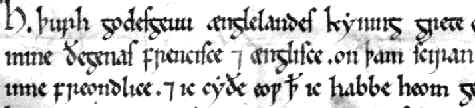 H. þurh godesgeuu ænglelandes kyning grete
mine ðegenas frencisce ⁊ englisce . on þam sciran
inne freondlice . ⁊ ic cyðe eop ꝥ ic habbe heom